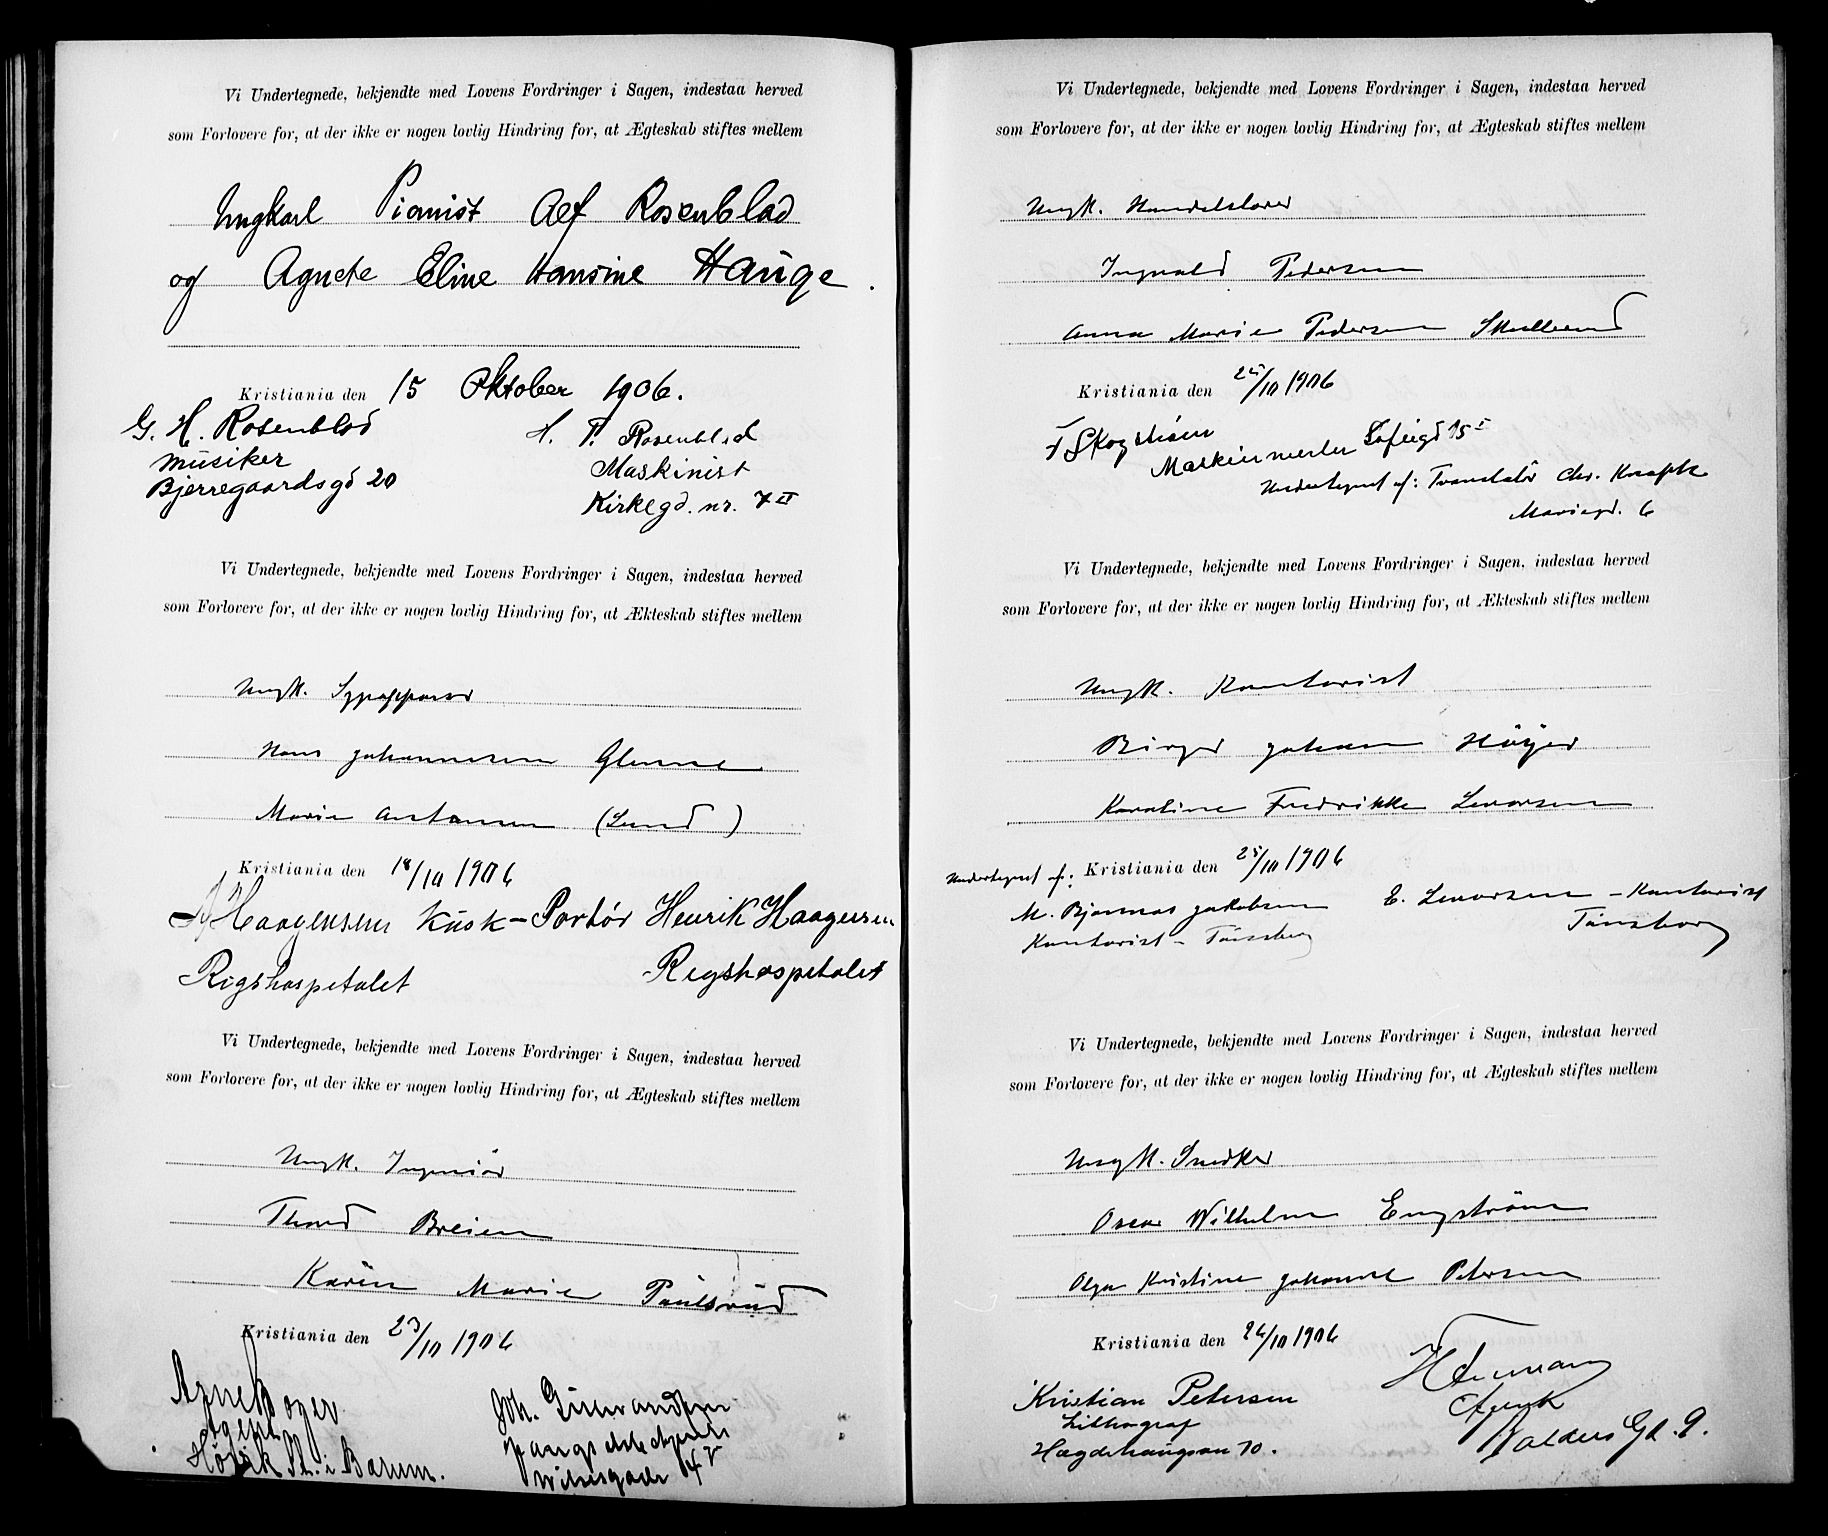 Vi Undertegnede, bekjendte med Lovens Fordringer i Sagen, indestaa herved
som Forlovere for, at der ikke er nogen lovlig Hindring for, at Ægteskab stiftes mellem
Ungkarl Pianist Alf Rosenblad
og Agnete Eline Hansine Hauge.
Kristiania den 15 Oktober 1906.
G. H. Rosenblad
Musiker
Bjerregaardsgd 20
H. P. Rosenblad
Maskinist
Kirkegd. nr. 7 II
Vi Undertegnede, bekjendte med Lovens Fordringer i Sagen, indestaa herved
som Forlovere for, at der ikke er nogen lovlig Hindring for, at Ækteskab stiftes mellem
Ungk.
Hans Johannesen Glenne
Marie Antonsen (Lund)
Kristiania den 18/10 1906
Haagensen Kusk - Portør Henrik Haagensen
Rigshospetalet Rigshospetalet
Vi Undertegnede, bekjendte med Lovens Fordringer i Sagen, indestaa herved
som Forlovere for, at der ikke er nogen lovlig Hindring for, at Ægteskab stiftes mellem
Ungk. Ingeniør
Thord Breien
Karen Marie Paulsrud
Kristiania den 23/10 1906
Agent
Høvik St. i Bærum.
Joh.
Vi Undertegnede, bekjendte med Lovens Fordringer i Sagen, indestaa herved
som Forlovere for, at der ikke er nogen lovlig Hindring for, at Ægteskab stiftes mellem
Ungk. Handelslærer
Ingvald Pedersen
Anna Marie Pedersen Skullerud
Kristiania den 25/10 1906
Maskinmester Sofiegd 15 I
Undertegnet af: Translatør Chr.
Mariegd. 6
Vi Undertegnede, bekjendte med Lovens Fordringer i Sagen, indestaa herved
som Forlovere for, at der ikke er nogen lovlig Hindring for, at Ækteskab stiftes mellem
Ungk. Kontorist
Birger Johan Höyer
Karoline Fredrikke Levorsen
Undertegnet af: Kristiania den 25/10 1906
M. Bjarmas Jakobsen
Kontorist - Tönsberg
E. Levorsen - Kontorist
Tönsberg
Vi Undertegnede, bekjendte med Lovens Fordringer i Sagen, indestaa herved
som Forlovere for, at der ikke er nogen lovlig Hindring for, at Ægteskab stiftes mellem
Ungk. Snedker
Oscar Wilhelm Engström
Olga Kristine Johanne Petersen
Kristiania den 26/10 1906
Kristian Petersen
Lithograf
Hægdehaugsvn 70.
Agent
Balders Gd. 9.